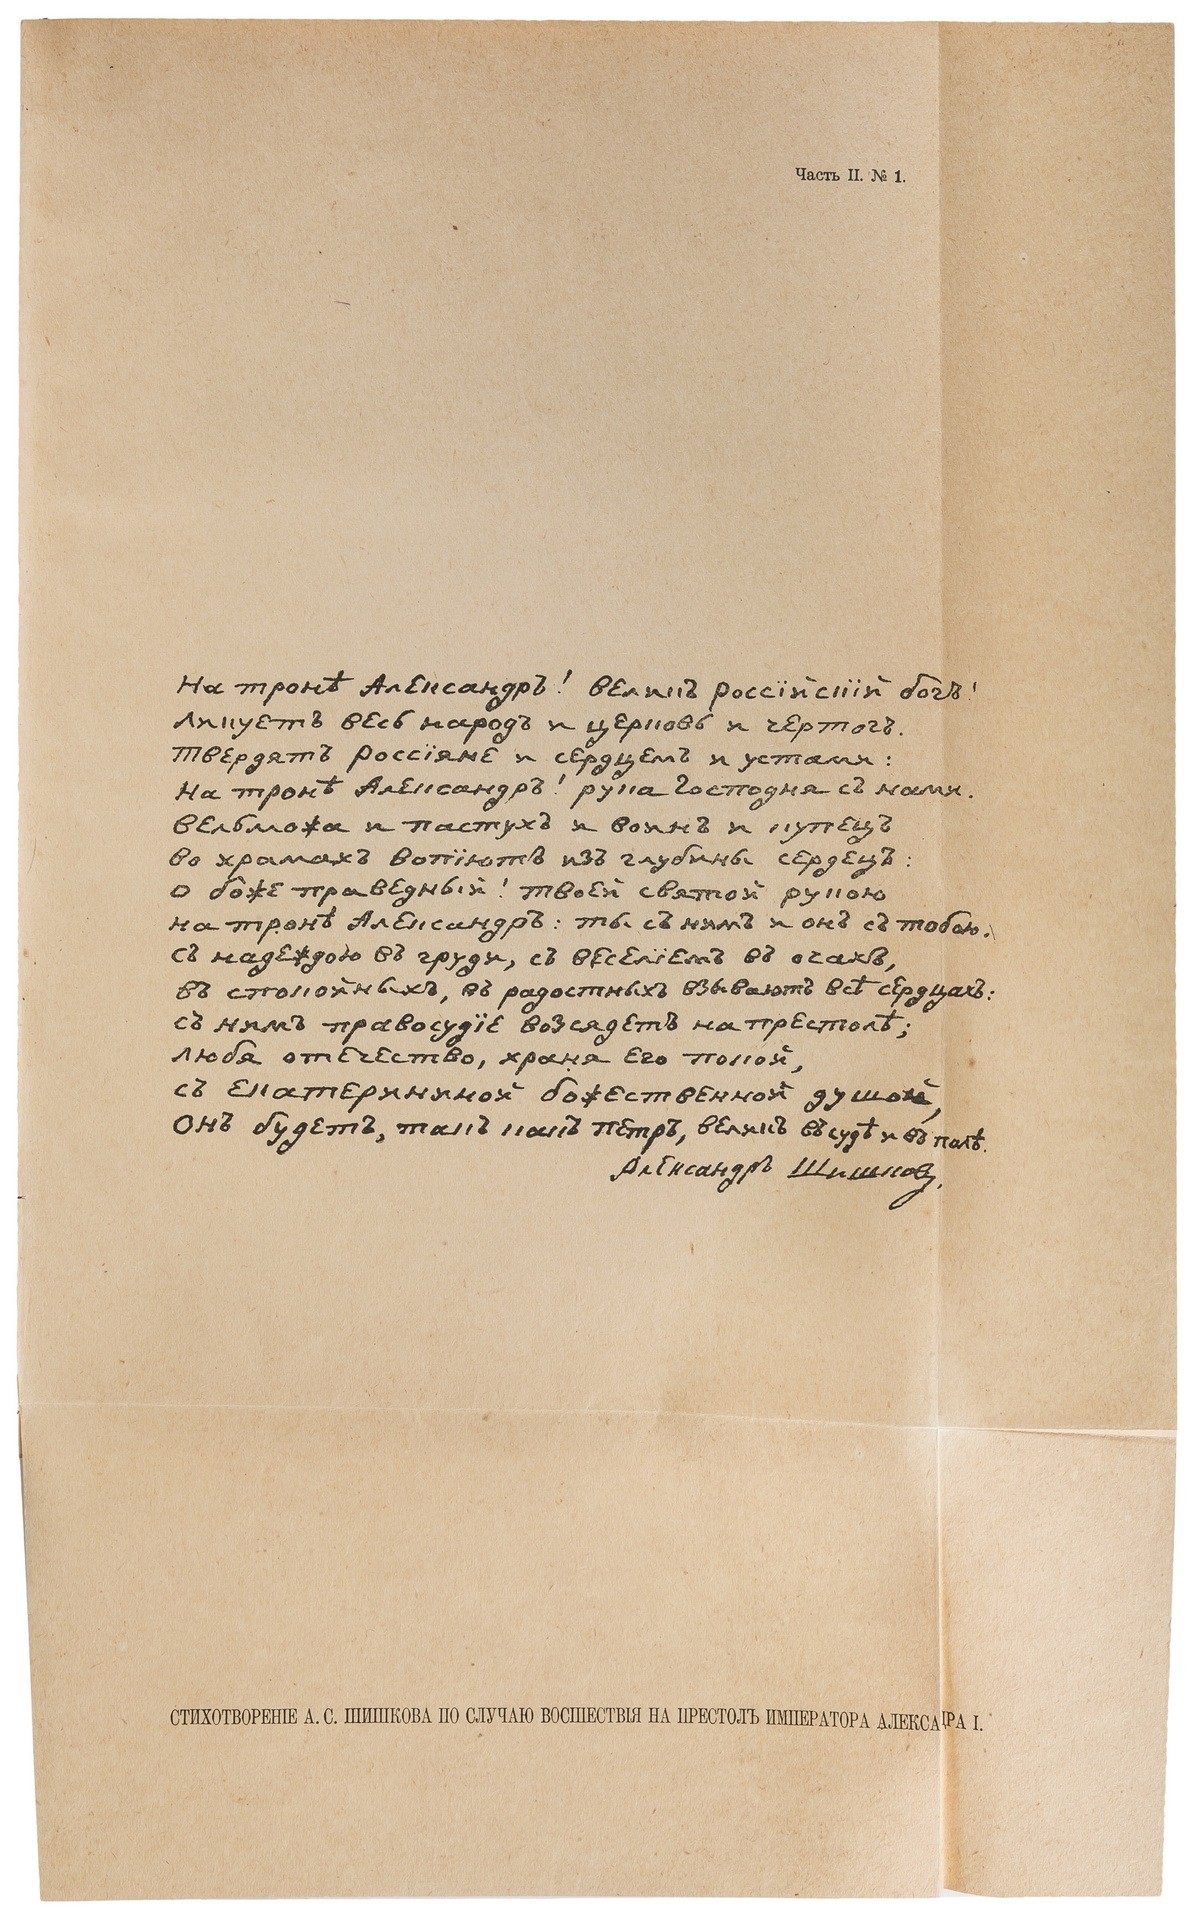 Часть II. № 1.
На тронѣ Александръ! великъ россїйскїй богъ!
Ликуетъ весь народъ и церковь и чертогъ.
твердятъ россїяне и сердцемъ и устами:
На тронѣ Александръ! рука господня съ нами.
вельможа и пастухъ и воинъ и купецъ
во храмахъ вопїютъ изъ глубины сердецъ:
о боже праведный! твоей святой рукою
на тронѣ Александръ: ты съ нимъ и онъ съ тобою.
съ надеждою въ груди, съ веселїемъ въ очахъ,
въ спокойныхъ, въ радостныхъ взываютъ всѣ сердцахъ:
съ нимъ правосудїе возсядетъ на престолѣ;
любя отечество, храня его покой,
съ Екатерининой божественной душой,
Онъ будетъ, такъ какъ Петръ, великъ въ судѣ и въ полѣ.
Александръ Шишковъ.
СТИХОТВОРЕНІЕ А. С. ШИШКОВА ПО СЛУЧАЮ ВОСШЕСТВІЯ НА ПРЕСТОЛЪ ИМПЕРАТОРА АЛЕКСАДРА I.